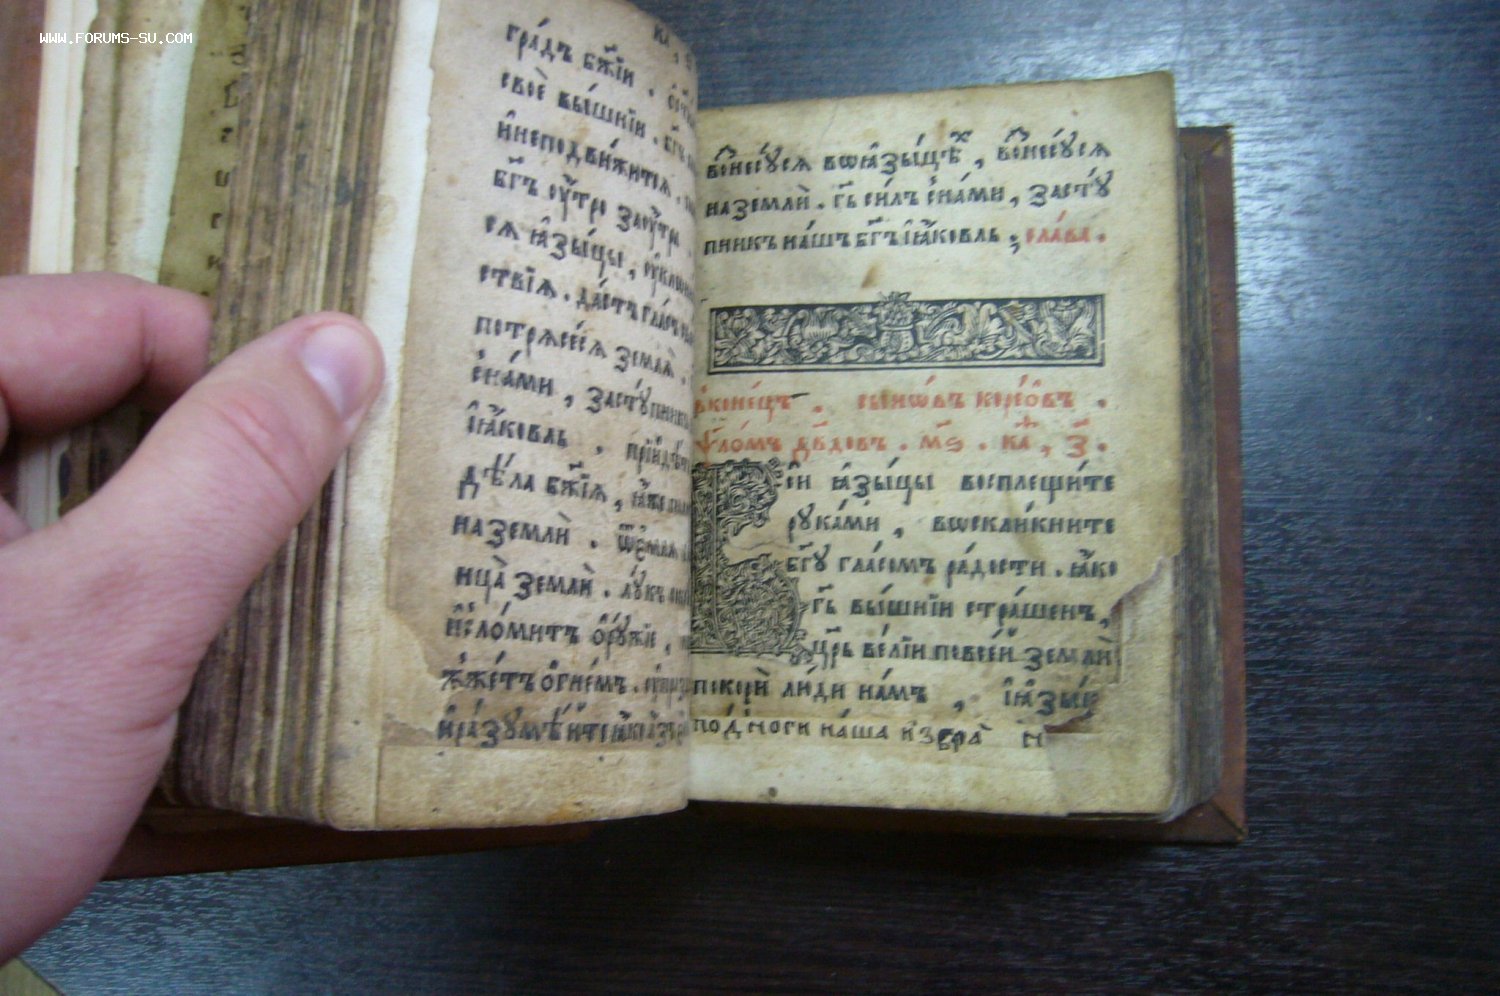 WWW.FORUMS-SU.COM
гра́дъ бж҃їи .
своѐ вы́шнїи . бг҃ъ
и҆неподви́житсѧ .
бг҃ъ ᲂу҆́тро заᲂу҆́тра
сѧ ꙗ҆зы́цы ,
ствїѧ . да́стъ гла́съ
потрѧсе́сѧ землѧ̀ .
с̾на́ми , засту́пникъ
і҆а́ковль . прїиди́те
дѣ́ла бж҃їѧ , ꙗ҆́же
наземлѝ .
ица̀ землѝ . лу́къ
и҆сло́митъ ѻ҆рꙋ́жїе ,
жже́тъ ѻ҆гне́мъ .
и҆разꙋмѣ́ите
возне́сусѧ вꙗ҆зы́цѣхъ , возне́сусѧ
наземлѝ . гд҇ь си́лъ с̾на́ми , застꙋ́
пникъ на́шъ бг҃ъ і҆а́ковль ; сла́ва .
вконе́цъ . сынѡ́въ коре́овъ .
ѱало́мъ дв҃довъ . м҃ѕ . ка , з҃ .
Вси ꙗ҆зы́цы восплещи́те
рука́ми , воскли́кните
бг҃у гла́сомъ ра́дости . ꙗ҆́ко
гд҇ь вы́шнїи стра́шенъ ,
цр҃ь ве́лїи повсе́й землѝ
покорѝ лю́ди на́мъ , і҆ꙗ҆зы́к
под̾ но́ги на́ша и҆збра̀ н